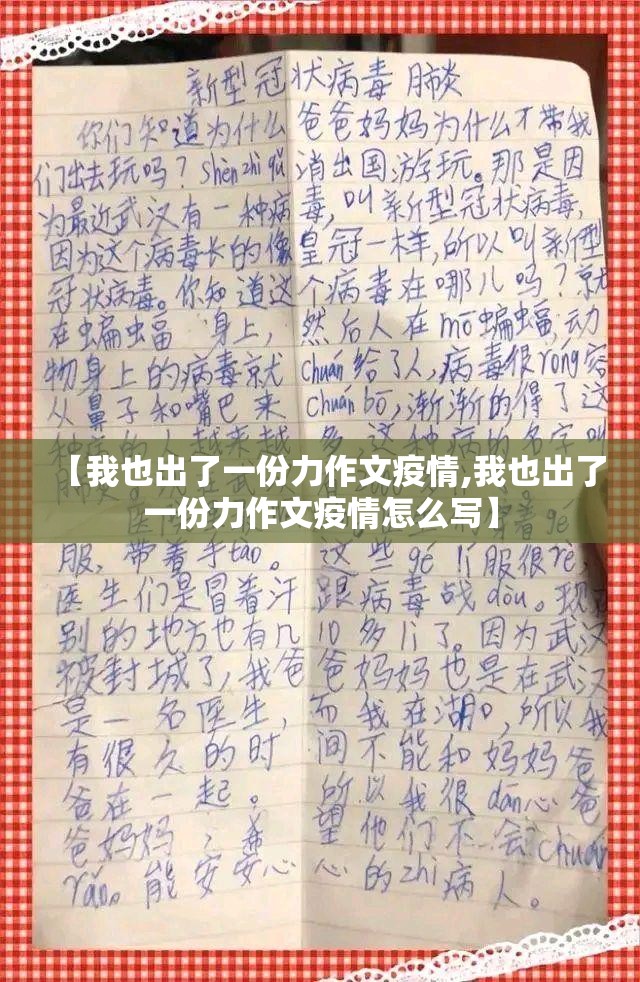 新型冠状病毒肺炎
你们知道为什么爸爸妈妈为什么不带我
们出去玩吗？shèn zhì qǔ消出国游玩。那是因
为最近武汉有一种病毒，叫新型冠状病毒，
因为这个病毒长的像皇冠一样，所以叫新型
冠状病毒。你知道这个病毒在哪儿吗？就
在蝙蝠身上，然后人在mō蝙蝠，动
物身上的病毒就chuán给了人，病毒很róng容
从鼻子和嘴巴来chuán bō，渐渐的得了这
种病的人越来越多，这种病的名字叫
【我也出了一份力作文疫情,我也出了
一份力作文疫情怎么写】
服，带着手tào。这些gé lí服很rè，
医生们是冒着汗跟病毒战dòu。现在
别的地方也有几10多li了。因为武汉
被封城了，我爸爸妈妈也是在武汉
是一名医生，而我在湖口，所以我
有很久的时间不能和妈妈爸
爸在一起。所以我很dān心爸
爸妈妈；希望他们不会chuán
rǎn。能安安心心的zhì病人。